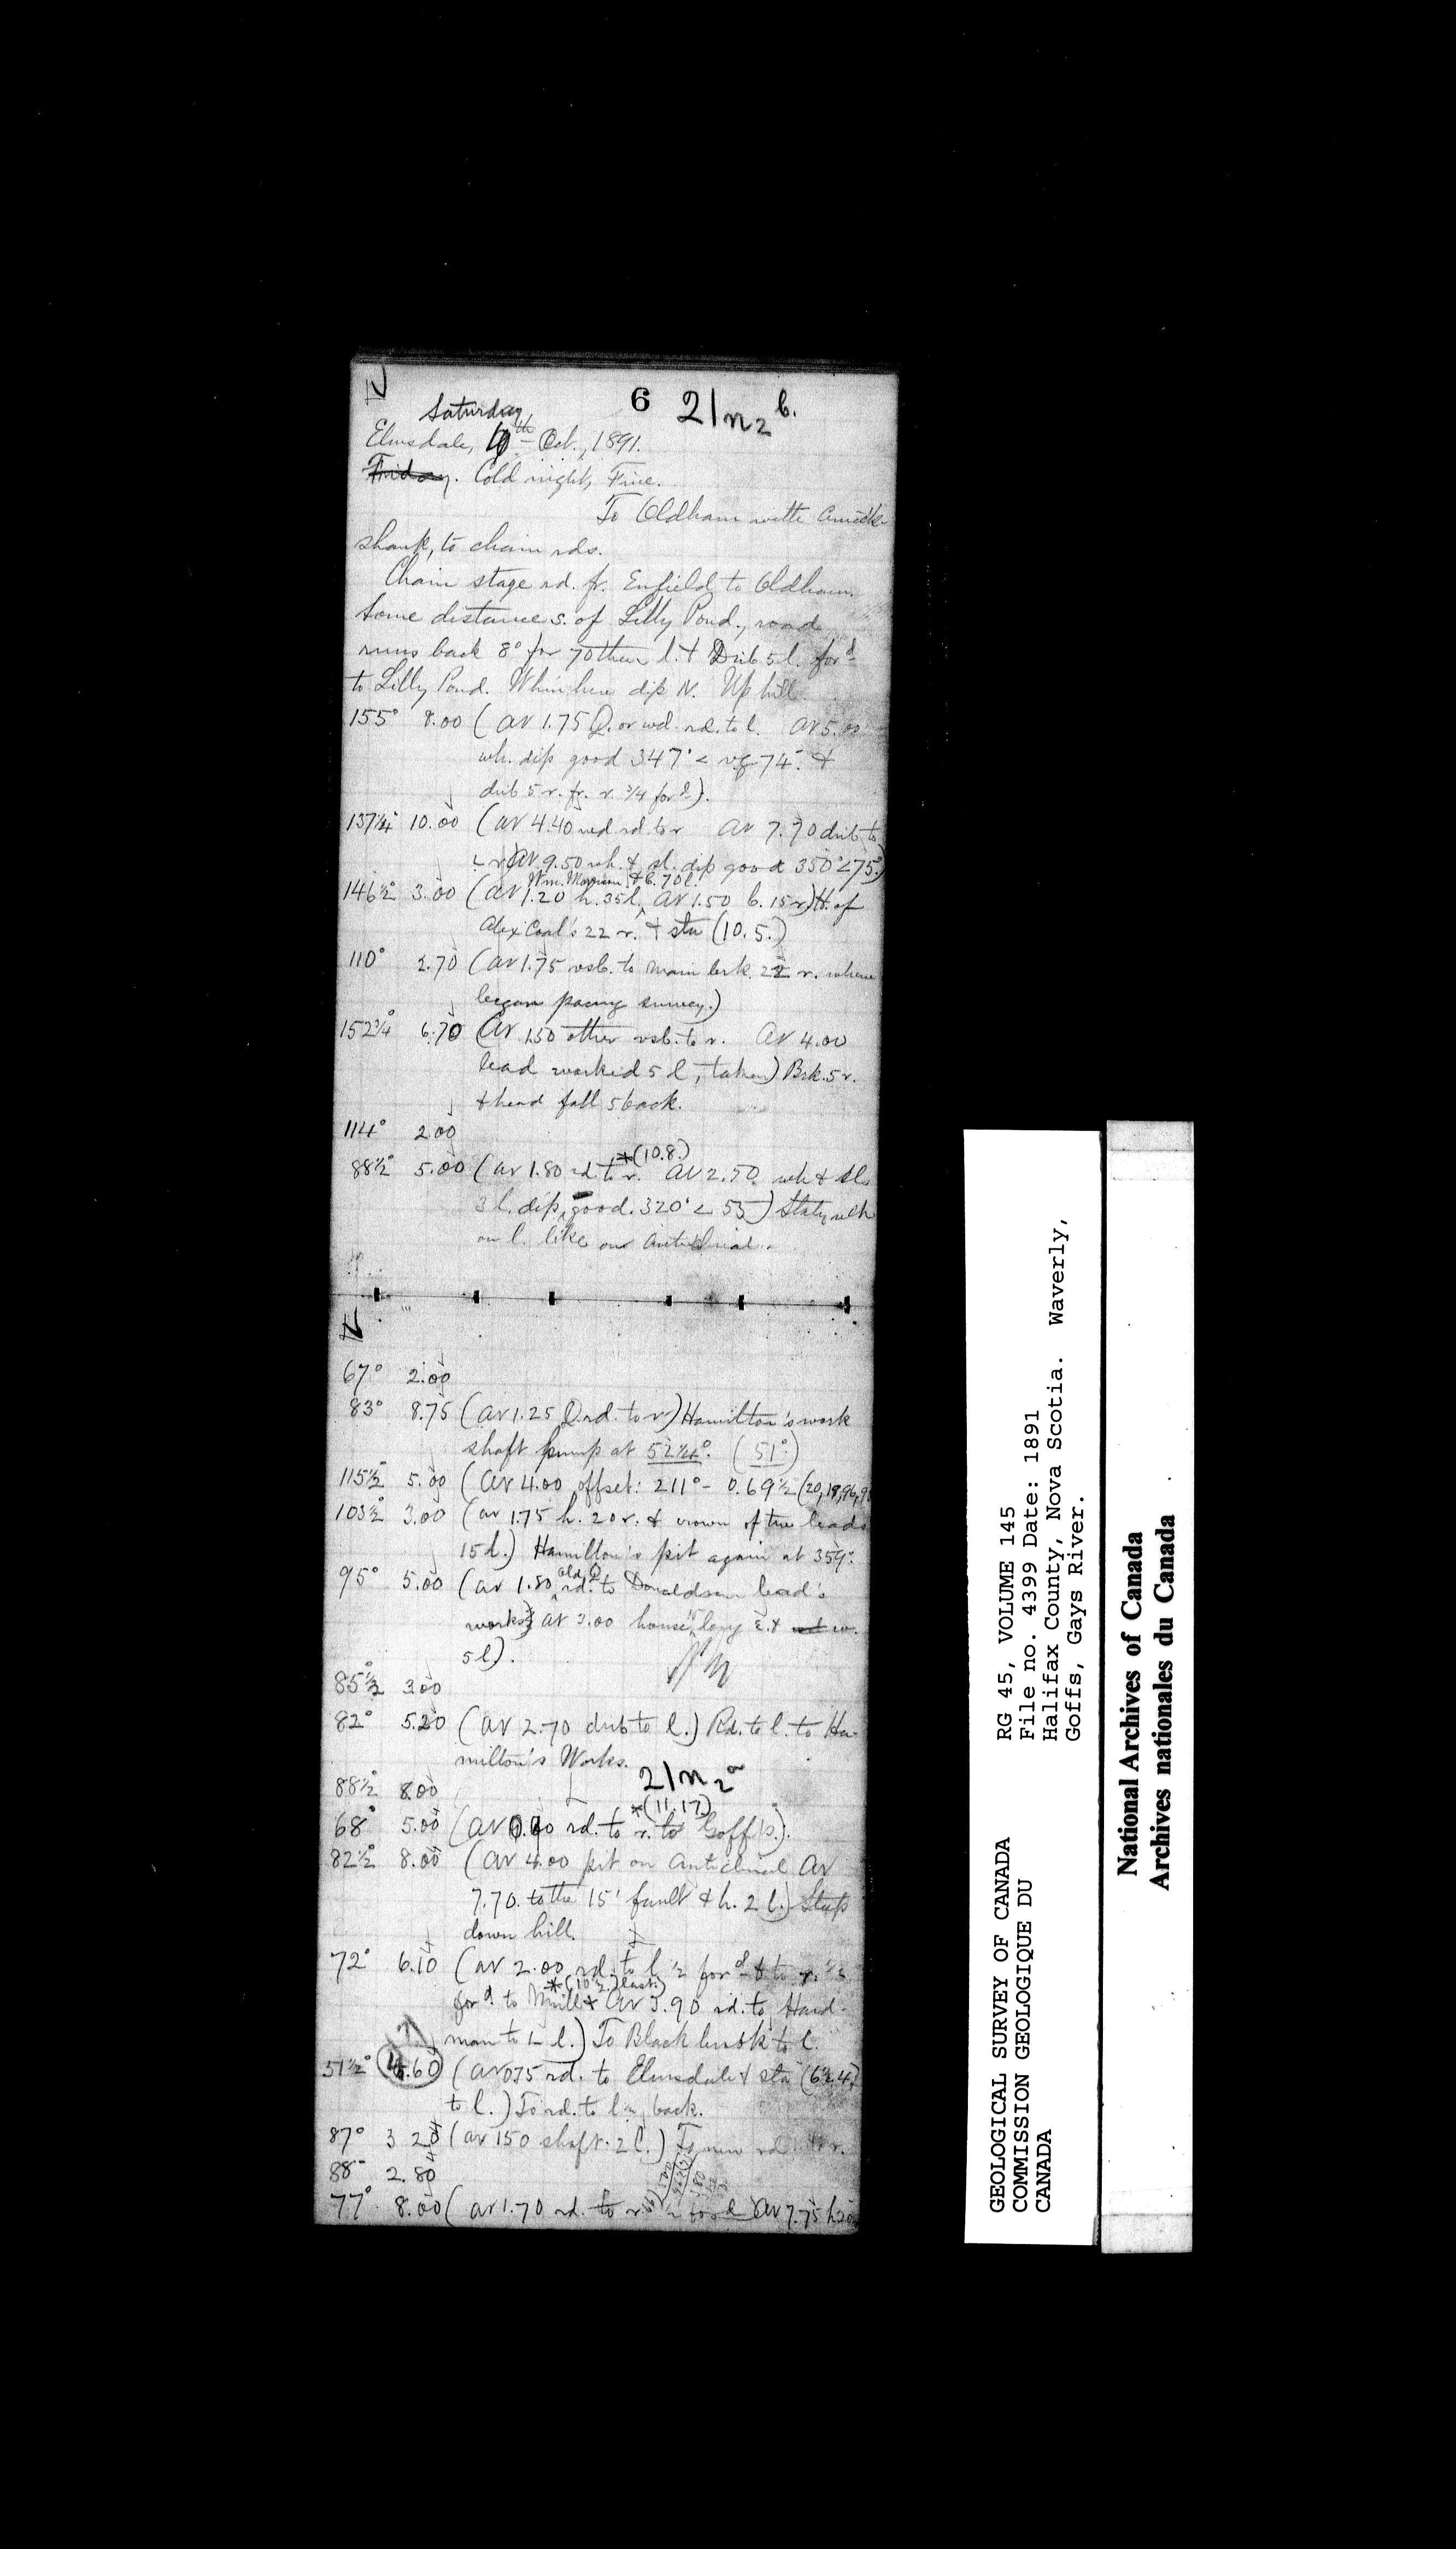 6 21n2 b.
Saturday
Elmsdale, 10th Oct., 1891.
Friday. Cold night, Fine.
To Oldham with Cruick-
shank, to chain rds.
Chain stage rd. fr. Enfield to Oldham.
Some distance s. of Lilly Pond, road
runs back 8° for 70 then l. & Drib 5 l. ford
to Lilly Pond. Whin here dip N. Up hill.
155° 8.00 (av 1.75 Q. or wd. rd. to l. av 5.00
wh. dip good 347° < vg 74°. &
drib 5 r. fr. r. 3/4 ford).
137 1/4 10.00 (av 4.40 wd rd. to r av 7.70 drib to
r) av 9.50 wh. & sl. dip good 350° < 75°)
Wm. Morrison & b. 70 l.
146 1/2° 3.00 (av 1.20 h. 35 l. av 1.50 b. 15 r) H. of
Alex Caul's 22 r. & sta (10.5.)
110° 2.70 (av 1.75 vsb. to main brk. 22 r. where
began pacing survey.)
152 3/4° 6.70 (av 1.50 other vsb. to r. av 4.00
lead worked 5 l, taken) Brk. 5 r.
& head fall 5 back.
114° 2.00
*(10.8.)
88 1/2° 5.00 (av 1.80 rd. to r. av 2.50 wh & sl.
3 l. dip, good. 320° < 55) Slaty wh
on l. like on anticlinal.
67° 2.00
83° 8.75 (av 1.25 Q. rd. to r) Hamilton's work
shaft pump at 52 1/4°. (51°)
115 1/2° 5.00 (av 4.00 offset: 211° - 0.69 1/2 (20,19,96,9
103 1/2° 3.00 (av 1.75 h. 20 r. & crown of the leads
15 l.) Hamilton's pit again at 359°.
old Q
95° 5.00 (av 1.80 rd. to Donaldson lead's
works) av 3.00 house, long E. & w.
5 l).
85 1/2° 3.00
82° 5.20 (av 2.70 drib to l.) Rd. to l. to Ha-
milton's Works.
21n2 a
88 1/2° 8.00
*(11.17)
68° 5.00 (av 0.90 rd. to r. to Goff's).
82 1/2° 8.00 (av 4.00 pit on anticlinal av
7.70. to the 15' fault & h. 2 l.) Steep
down hill.
72° 6.10 (av 2.00 rd. to l 1/2 ford & to r. 1/2
*(10 1/2.) last)
ford to Mill & av 3.90 rd. to Hard-
man to l.) To Black brook to l.
51 1/2° 4.60 (av 0.75 rd. to Elmsdale & sta (6 1/2.4)
to l.) To rd. to l. back.
87° 3.20 (av 1.50 shaft 2 l.) To new rd. r.
88° 2.80
77° 8.00 (av 1.70 rd. to r. ford) av 7.75 h 20
GEOLOGICAL SURVEY OF CANADA
COMMISSION GEOLOGIQUE DU
CANADA
RG 45, VOLUME 145
File no. 4399 Date: 1891
Halifax County, Nova Scotia. Waverly,
Goffs, Gays River.
National Archives of Canada
Archives nationales du Canada